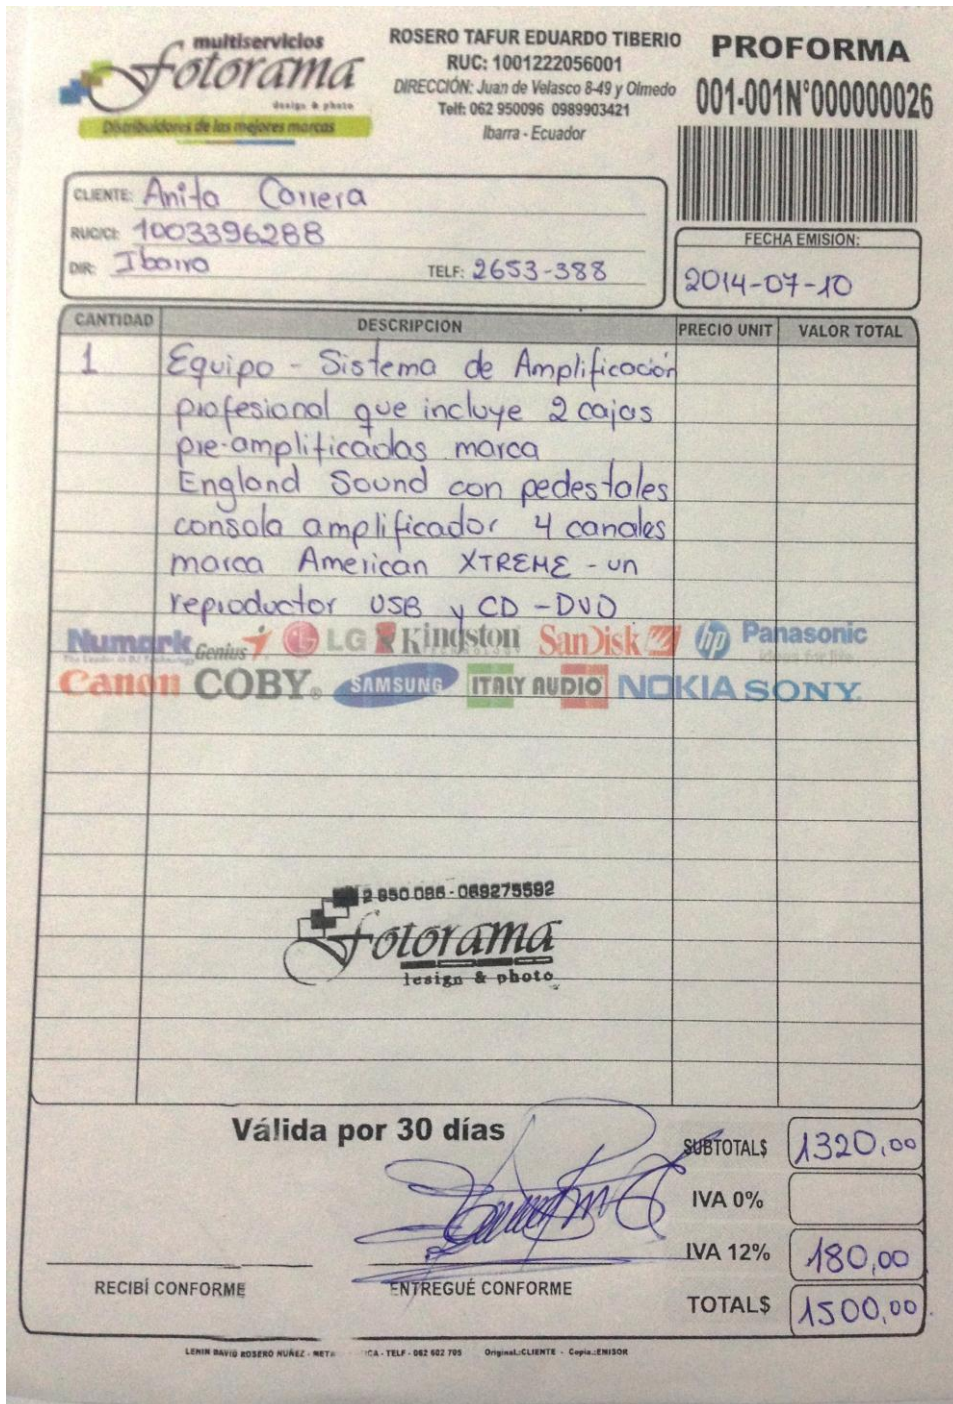 multiservicios
Fotorama
design & photo
Distribuidores de las mejores marcas
ROSERO TAFUR EDUARDO TIBERIO
RUC: 1001222056001
DIRECCIÓN: Juan de Velasco 8-49 y Olmedo
Telf: 062 950096 0989903421
Ibarra - Ecuador
PROFORMA
001-001N°000000026
CLIENTE: Anita Correra
RUC/CI: 1003396288
DIR: Ibarra TELF: 2653-388
FECHA EMISIÓN:
2014-07-10
CANTIDAD DESCRIPCION PRECIO UNIT VALOR TOTAL
1 Equipo - Sistema de Amplificación
profesional que incluye 2 cajas
pre-amplificadas marca
England Sound con pedestales
consola amplificador 4 canales
marca American XTREME - un
reproductor USB y CD - DVD
Numark Genius LG Kingston SanDisk hp Panasonic
TECHNOLOGY ideas for life
Canon COBY® SAMSUNG ITALY AUDIO NOKIA SONY
2 950 096 - 069275592
Fotorama
design & photo
Válida por 30 días
SUBTOTAL$ 1320,00
IVA 0%
IVA 12% 180,00
TOTAL$ 1500,00
RECIBÍ CONFORME ENTREGUÉ CONFORME
LENIN DAVID ROSERO NUÑEZ - TELF - 062 602 705 Original.:CLIENTE - Copia.:EMISOR